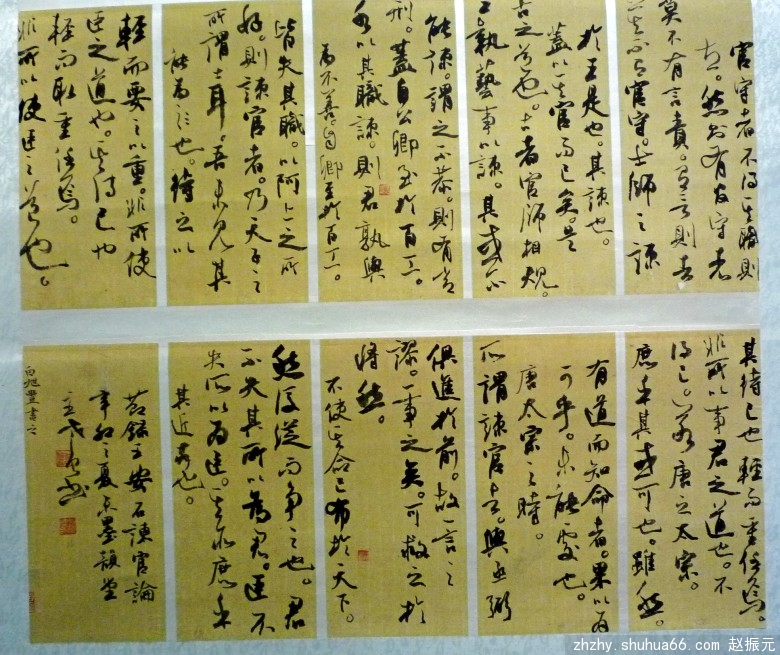 官守者不得其職則
去。然則有官守者
莫不有言責。有言則去
官守。士師之諫
於王是也。其諫也。
蓋以其官而已矣。是
古之道也。古者官師相規。
工執藝事以諫。其或不
能諫。謂之不恭。則有常
刑。蓋自公卿至於百工。
各以其職諫。則君孰與
為不善。自卿至於百工。
皆失其職。以阿上之所
好。則諫官者。乃天子之
所謂士耳。吾未見其
能為之也。待之以
輕而要之以重。非所使
臣之道也。其待己也
輕而取重任焉。
非所以使臣之道也。
其待己也輕而重任焉。
非所以事君之道也。不
得已。若唐之太宗。
庶乎其或可也。雖然。
有道而知命者。果以為
可乎。未能處也。
唐太宗之時。
所謂諫官者。與丞弼
俱進於前。故一言之
謬。一事之失。可救之於
將然。
不使其命已布於天下。
然後從而爭之也。君
不失其所以為君。臣不
失其所以為臣。其亦庶乎
其近古也。
節錄王安石諫官論
辛卯之夏於墨韻堂
旭豐書之
zhzhy.shuhua66.com 赵振元